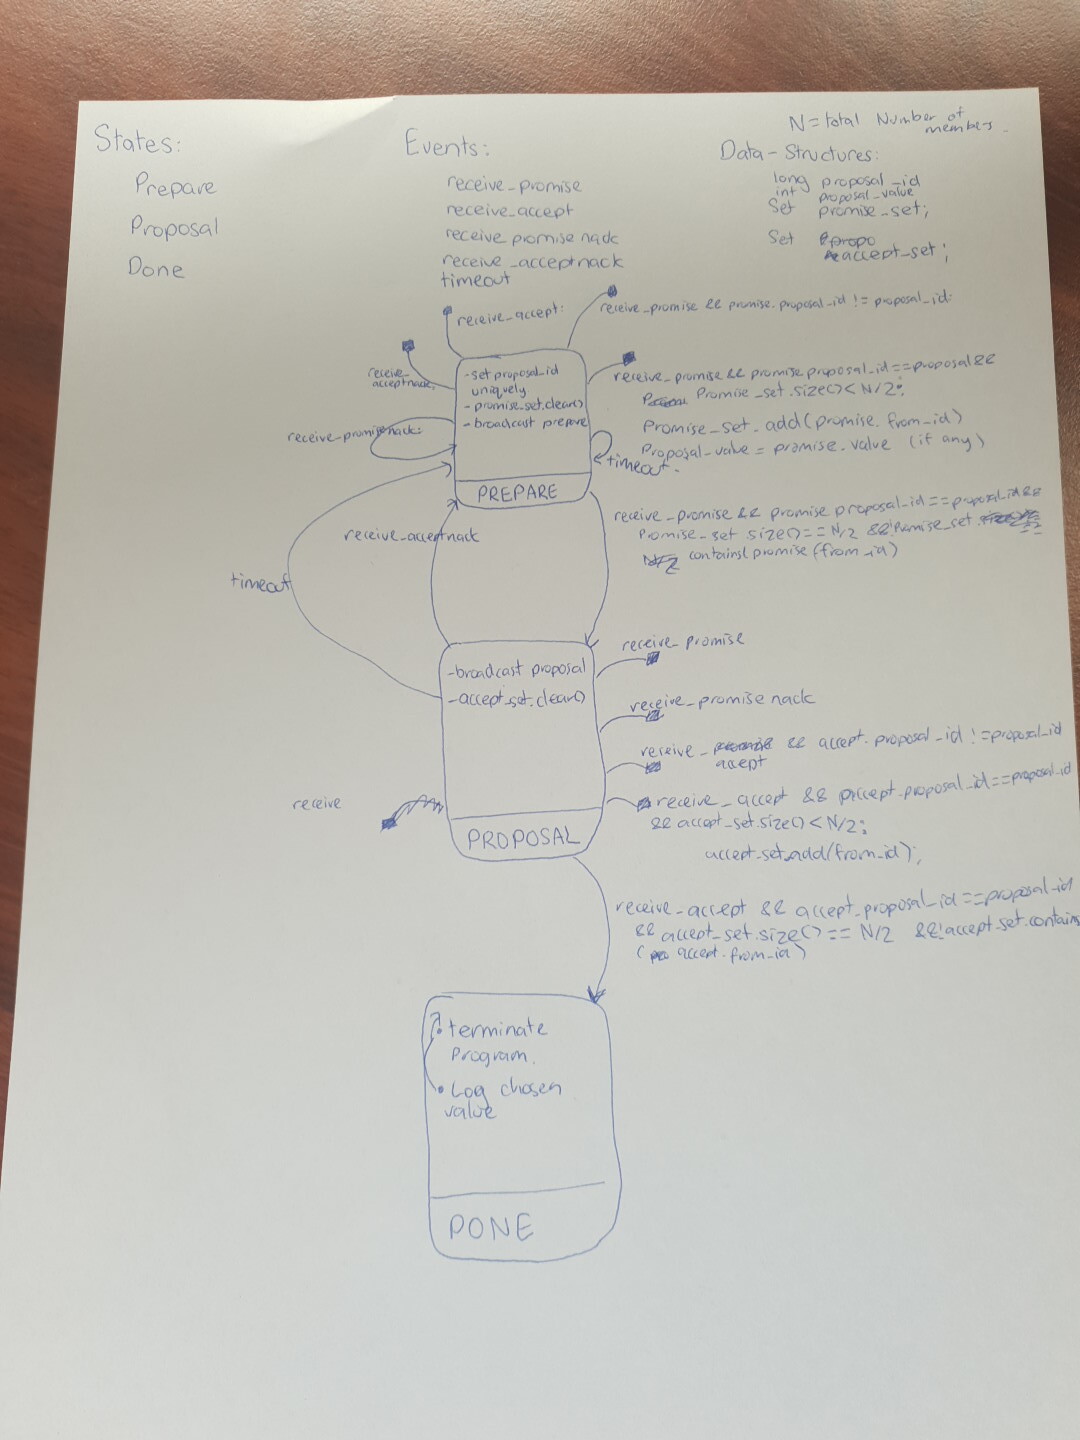 N = total Number of
members.
States:
Events:
Data-Structures:
Prepare
Proposal
Done
receive_promise
receive_accept
receive promise nack
receive_acceptnack
timeout
long proposal_id
int proposal_value
Set promise_set;
Set propo
accept_set;
receive_accept:
receive_promise && promise.proposal_id != proposal_id:
receive_
acceptnack:
-set proposal_id
uniquely
-promise_set.clear()
-broadcast prepare
PREPARE
receive_promise && promise proposal_id==proposal&&
Promise_set.size()< N/2:
Promise_set.add(promise.from_id)
Proposal_value = promise.value (if any)
receive_promisenack:
timeout.
receive_promise && promise proposal_id==proposal_id&&
Promise_set size()== N/2 &&!Promise_set
contains(promise(from_id)
receive_acceptnack
timeout
-broadcast proposal
-accept_set.clear()
PROPOSAL
receive_promise
receive_promise nack
receive_ && accept.proposal_id !=proposal_id
accept
receive_accept && accept.proposal_id==proposal_id
&& accept_set.size()<N/2:
accept_set.add(from_id);
receive
receive_accept && accept_proposal_id==proposal_id
&& accept_set.size()== N/2 &&!accept_set.contains
(accept.from_id)
• terminate
Program.
• Log chosen
value
DONE